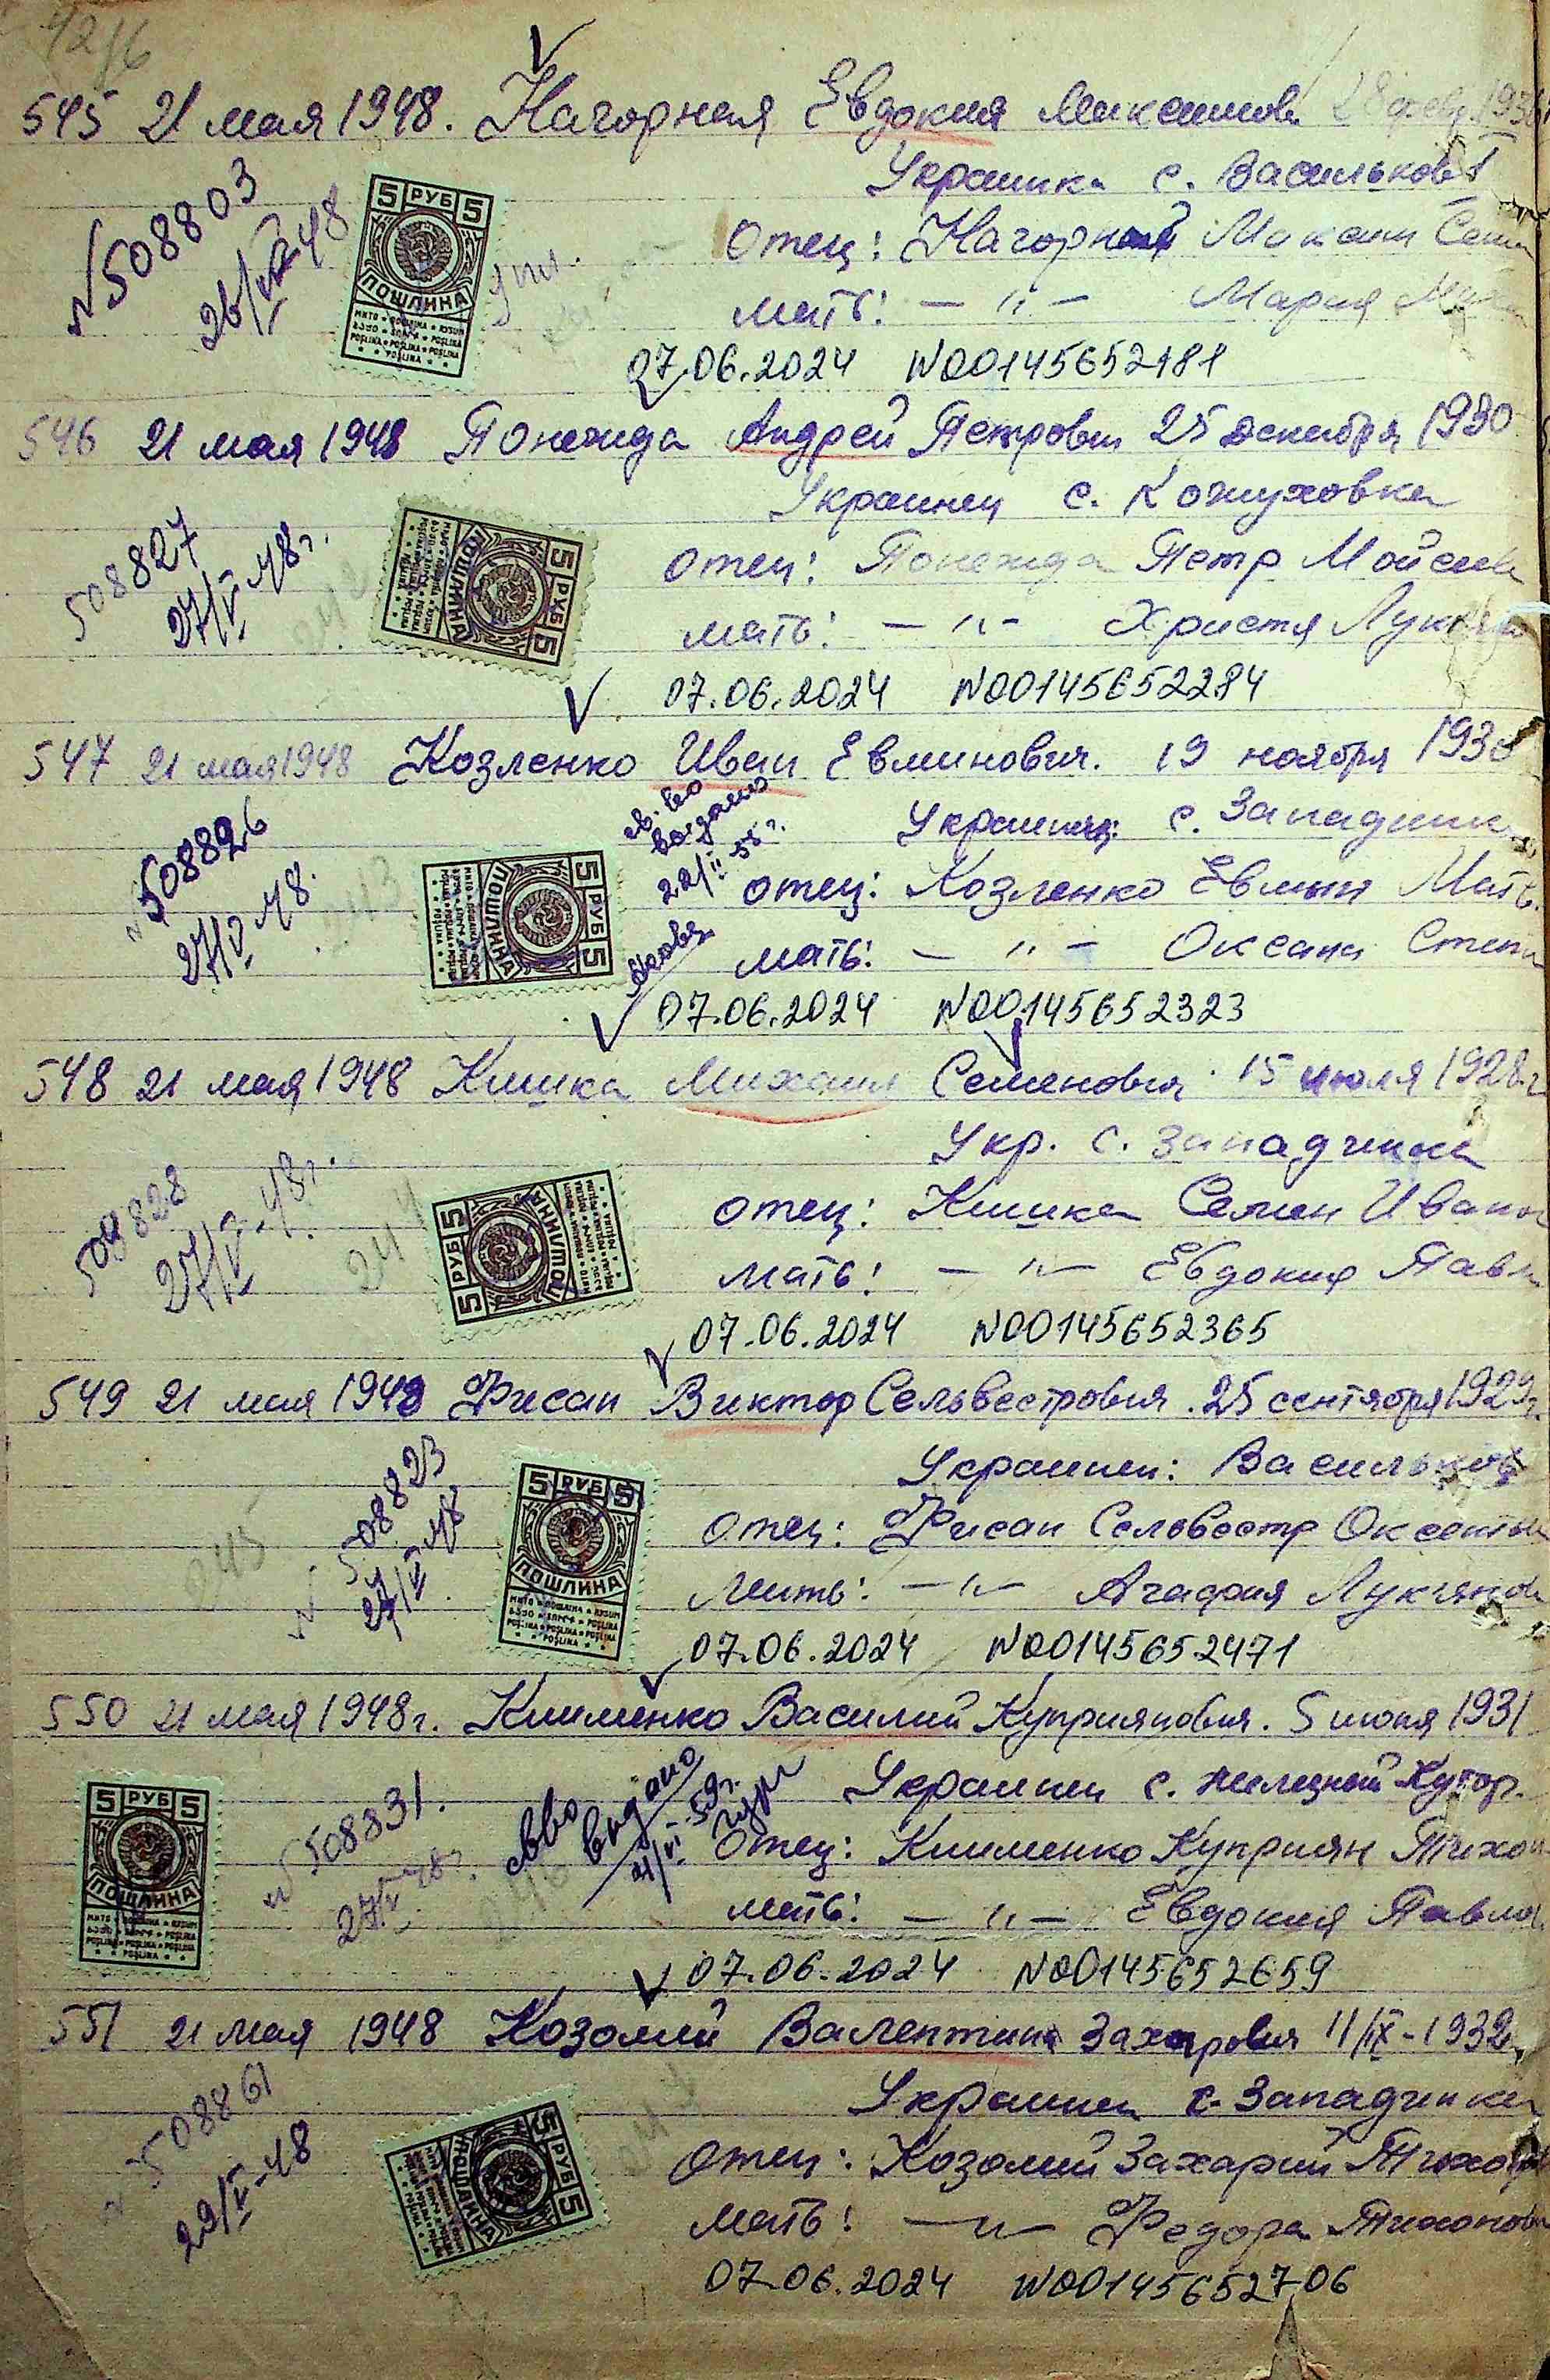 545 21 мая 1948. Нагорная Евдокия Максимов. 28 фев. 193
Украинка с. Васильков
№508803
26/VII-48
5 РУБ 5
ПОШЛИНА
Отец: Нагорный Максим Сем
мать: — " — Мария
07.06.2024 №00145652181
546 21 мая 1948 Понежда Андрей Петрович 25 декабря 1930
Украинец с. Кожуховка
508827
27/V-48г.
5 РУБ 5
ПОШЛИНА
отец: Понежда Петр Мойсеев
мать: — " — Христя Лукья
07.06.2024 №00145652284
547 21 мая 1948 Козленко Иван Евминович. 19 ноября 193
св. во
выдано
22/II 55г.
Украинец: с. Западинк
№508826
27/V-48.
5 РУБ 5
ПОШЛИНА
отец: Козленко Евмин Матв.
мать: — " — Оксана Степ
07.06.2024 №00145652323
548 21 мая 1948 Кишка Михаил Семенович. 15 июля 1928г
Укр. с. Западинка
508828
27/V-48г.
244
5 РУБ 5
ПОШЛИНА
отец: Кишка Семен Иван
мать: — " — Евдокия Павл
07.06.2024 №00145652365
549 21 мая 1948 Фисан Виктор Сельвестрович. 25 сентября 1929г.
Украинец: Васильков
№508823
27/V-48
245
5 РУБ 5
ПОШЛИНА
Отец: Фисан Сельвестр Оксентье
Мать: — " — Агафия Лукянов
07.06.2024 №00145652471
550 21 мая 1948г. Клименко Василий Куприянович. 5 июня 1931
свво
выдано
21/VI-59г.
Украинец с. Зелецкий Хутор.
№508831.
27/V 48г.
5 РУБ 5
ПОШЛИНА
Отец: Клименко Куприян Тихон
мать: — " — Евдокия Павлов
07.06.2024 №00145652659
551 21 мая 1948 Козолий Валентин Захарович 11/IX-1932г.
Украинец с. Западинка
№508861
29/V-48
5 РУБ 5
ПОШЛИНА
Отец: Козолий Захарий Тихо
мать: — " — Федора Тихонов
07.06.2024 №00145652706